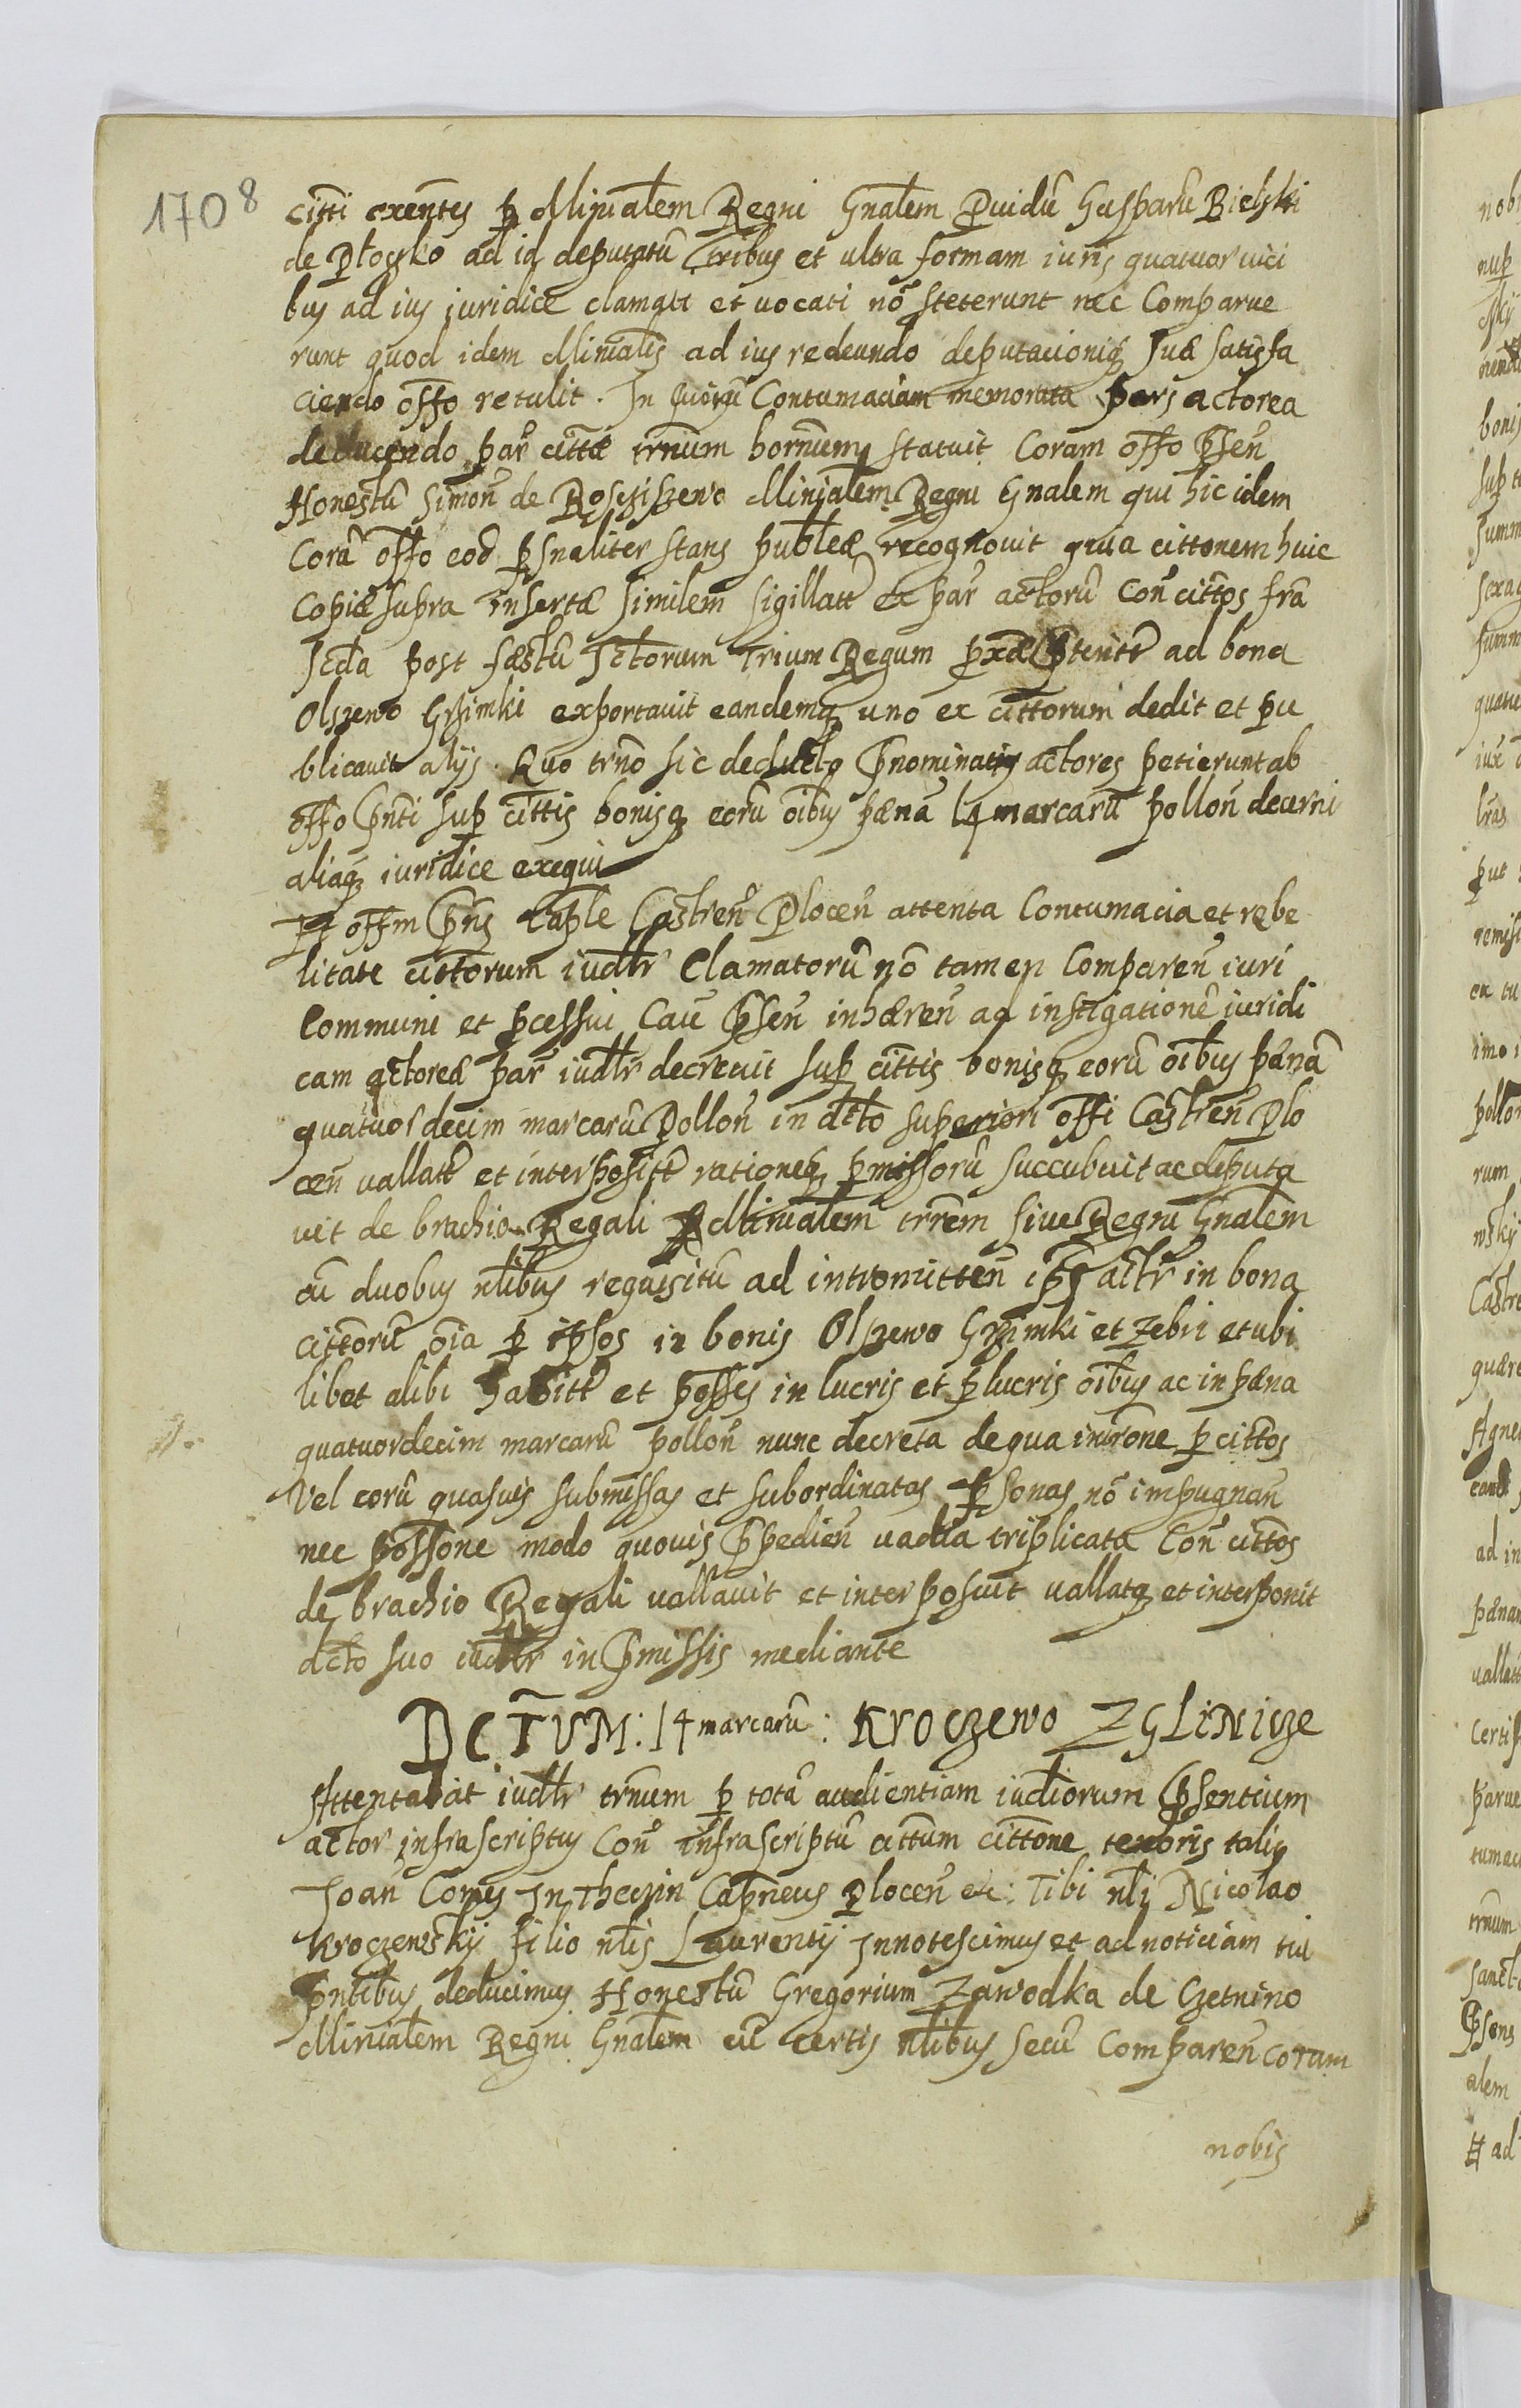 1708
citti exentes p Minialem Regni Gnalem Prouidū Gasparū Bielski
de Płoczko ad id deputatū tribus et ultra formam iuris quatuor uici
bus ad ius iuridice clamati et uocati nō steterunt nec Comparue
runt quod idem Minialis ad ius redeundo deputacioniq suæ satisfa
ciendo offo retulit. In quorū Contumaciam memorata pars actorea
deducendo par cittæ trnum hornum statuit Coram offo pſen
Honestū Simon de Rosciszewo Minialem Regni Gnalem qui hic idem
Corā offo eod psnaliter stans publcæ recognouit quia cittonem huic
Copiæ supra insertæ similem sigillatt ex par actorū Con cittos fra
scda post fæstū sctorum Trium Regum pxæ ptentr ad bona
Olszewo Grzimki exportauit eandemq uno ex cittorum dedit et pu
blicauit alijs. Quo trno sic deducto pnominatis actores petierunt ab
offo pnti sup cittis bonisq eorū oibus pæna 14 marcarū pollon decerni
aliaq iuridice exequi
Et offm pns Caple Castren Plocen attenta Contumacia et rebe
litate cittorum iudtr Clamatorū nō tamen Comparen iuri
Communi et pcessui Cau pſen inhæren ad instigationē iuridi
cam actoreæ par iudtr decreuit sup cittis bonisq eorū oibus pænā
quatuordecim marcarū Pollon in dcto superiori offi Castren Plo
cen vallatt et interpositt rationeq pmissorū succubuit ac deputa
uit de brachio Regali Minialem trrem siue Regni Gnalem
cū duobus nlibus requisitū ad intromitten ips actr in bona
cittorū oia p ipsos in bonis Olszewo Grzimki et Zebri et ubi
libet alibi habitt et posses in lucris et plucris oibus ac in pæna
quatuordecim marcarū pollon nunc decreta de qua introne p cittos
Vel eorū quasuis submissas et subordinatas psonas nō impugnan
nec possone modo quouis ppedien uadia triplicata Con cittos
de brachio Regali vallauit et interposuit vallatq et interponit
dcto suo iudtr in pmissis mediante
DCTUM: 14 marcarū: Kroczewo ZGLINicze
Attentabat iudtr trnum p totā audientiam iudiorum psentium
actor infrascriptus Con infrascriptū cittum cittone tenoris talis
Joan Comes In Theczin Capneus Plocen etc: Tibi nli Nicolao
Kroczewskij filio nlis Laurentij Innotescimus et ad noticiam tui
pntibus deducimus Honestū Gregorium Zawodka de Czernino
Minialem Regni Gnalem cū certis nlibus secū Comparen coram
nobis